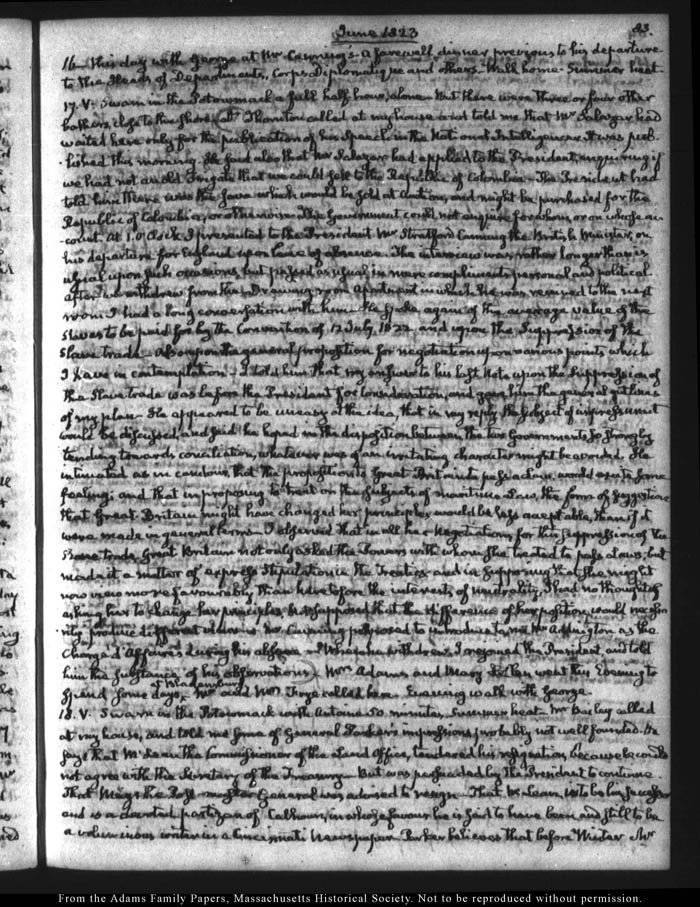 June 1823
83.
16. This day with George at Mr Canning's. A farewell dinner previous to his departure
to the Heads of Departments, Corps Diplomatique and others. Walk home. Summer heat.
17. V. Swam in the Potowmack a full half hour, alone. But there were three or four other
bathers, close to the shore. Dr Thornton called at my house and told me that Mr Salazar had
waited here only for the publication of his Speech in the National Intelligencer. It was pub-
lished this morning. He said also that Mr Salazar had applied to the President, enquiring if
we had not an old frigate that we could sell to the Republic of Colombia. The President had
told him there was the Java which would be sold at Auction, and might be purchased for the
Republic of Colombia, or otherwise. The Government could not enquire for whom, or on whose ac-
count. At 1. O'Clock I presented to the President Mr Stratford Canning the British Minister, on
his departure for England upon leave of absence. The interview was rather longer than is
usual upon such occasions, but passed as usual in mere compliments personal and political.
After we withdrew from the Drawing room apartment in which he was received to the next
room I had a long conversation with him. He spoke again of the average value of the
slaves to be paid for by the Convention of 12 July, 1822 and upon the Suppression of the
Slave trade. Also upon the general proposition for negotiation upon various points which
I have in contemplation. I told him that my answer to his last Note upon the Suppression of
the Slave trade was before the President for consideration, and gave him the general outlines
of my plan. He appeared to be uneasy at the idea, that in my reply the subject of impressment
would be discussed, and said he hoped in the disposition between the two Governments so strongly
tending towards conciliation, whatever was of an irritating character might be avoided. He
intimated as in candour, that the proposition to Great Britain to pass a law, would excite some
feeling; and that in proposing to treat on the subjects of maritime Law, the form of suggestion
that Great Britain might have changed her principles would be less acceptable, than if it
were made in general terms. I observed that in all her Negotiations for the suppression of the
Slave trade, Great Britain not only asked the Powers with whom she treated to pass laws, but
made it a matter of express stipulation in the Treaties and in supposing that she might
now view more favourably than heretofore the interests of neutrality, I had no thought of
asking her to change her principles but supposed that the difference of her position, would necessa-
rily produce different views. Mr Canning proposed to introduce to me Mr Addington as the
Chargé d'Affaires during his absence. When he withdrew, I rejoined the President, and told
him the substance of his observations. Mrs Adams and Mary Hellen went this Evening to
spend some days, at Bladensburg. Mr and Mrs Frye called here. Evening walk with George.
18. V. Swam in the Potowmack with Antoine 50 minutes. Summer heat. Mr Bailey called
at my house, and told me some of General Parker's impressions, probably not well founded. He
says that McLean the Commissioner of the Land Office, tendered his resignation, because he could
not agree with the Secretary of the Treasury. But was persuaded by the President to continue.
That Meigs the Post-master General was advised to resign. That McLean is to be his Successor
and is a devoted partizan of Calhoun, in whose favour he is said to have been and still to be
a voluminous writer in a Cincinnati Newspaper. Parker believes that before Winter Mr
From the Adams Family Papers, Massachusetts Historical Society. Not to be reproduced without permission.